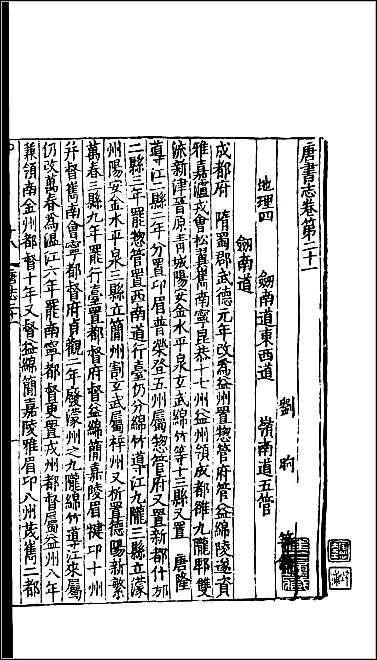 唐書志卷第二十一
劉昫
地理四　劒南道東西道　嶺南道五管
劒南道
成都府　隋蜀郡武德元年改爲益州置揔管府管益綿陵遂資
雅嘉瀘戎會松翼嶲南寧昆恭十七州益州領成都雒九隴郫雙
流新津晉原青城陽安金水平泉玄武綿竹等十三縣又置唐隆
導江二縣二年分置卭眉普榮登五州屬揔管府又置新都什邡
二縣三年罷揔管置西南道行臺仍分綿竹導江九隴三縣立濛
州陽安金水平泉三縣立簡州割玄武屬梓州又析置德陽新繁
萬春三縣九年罷行臺置都督府督益綿簡嘉陵眉犍卭十州
并督嶲南會寧都督府貞觀二年廢濛州之九隴綿竹導江來屬
仍改萬春爲温江六年罷南寧都督更置戎州都督屬益州八年
兼領南金州都督十年又督益綿簡嘉陵雅眉卭八州茂嶲二都
唐志二十一